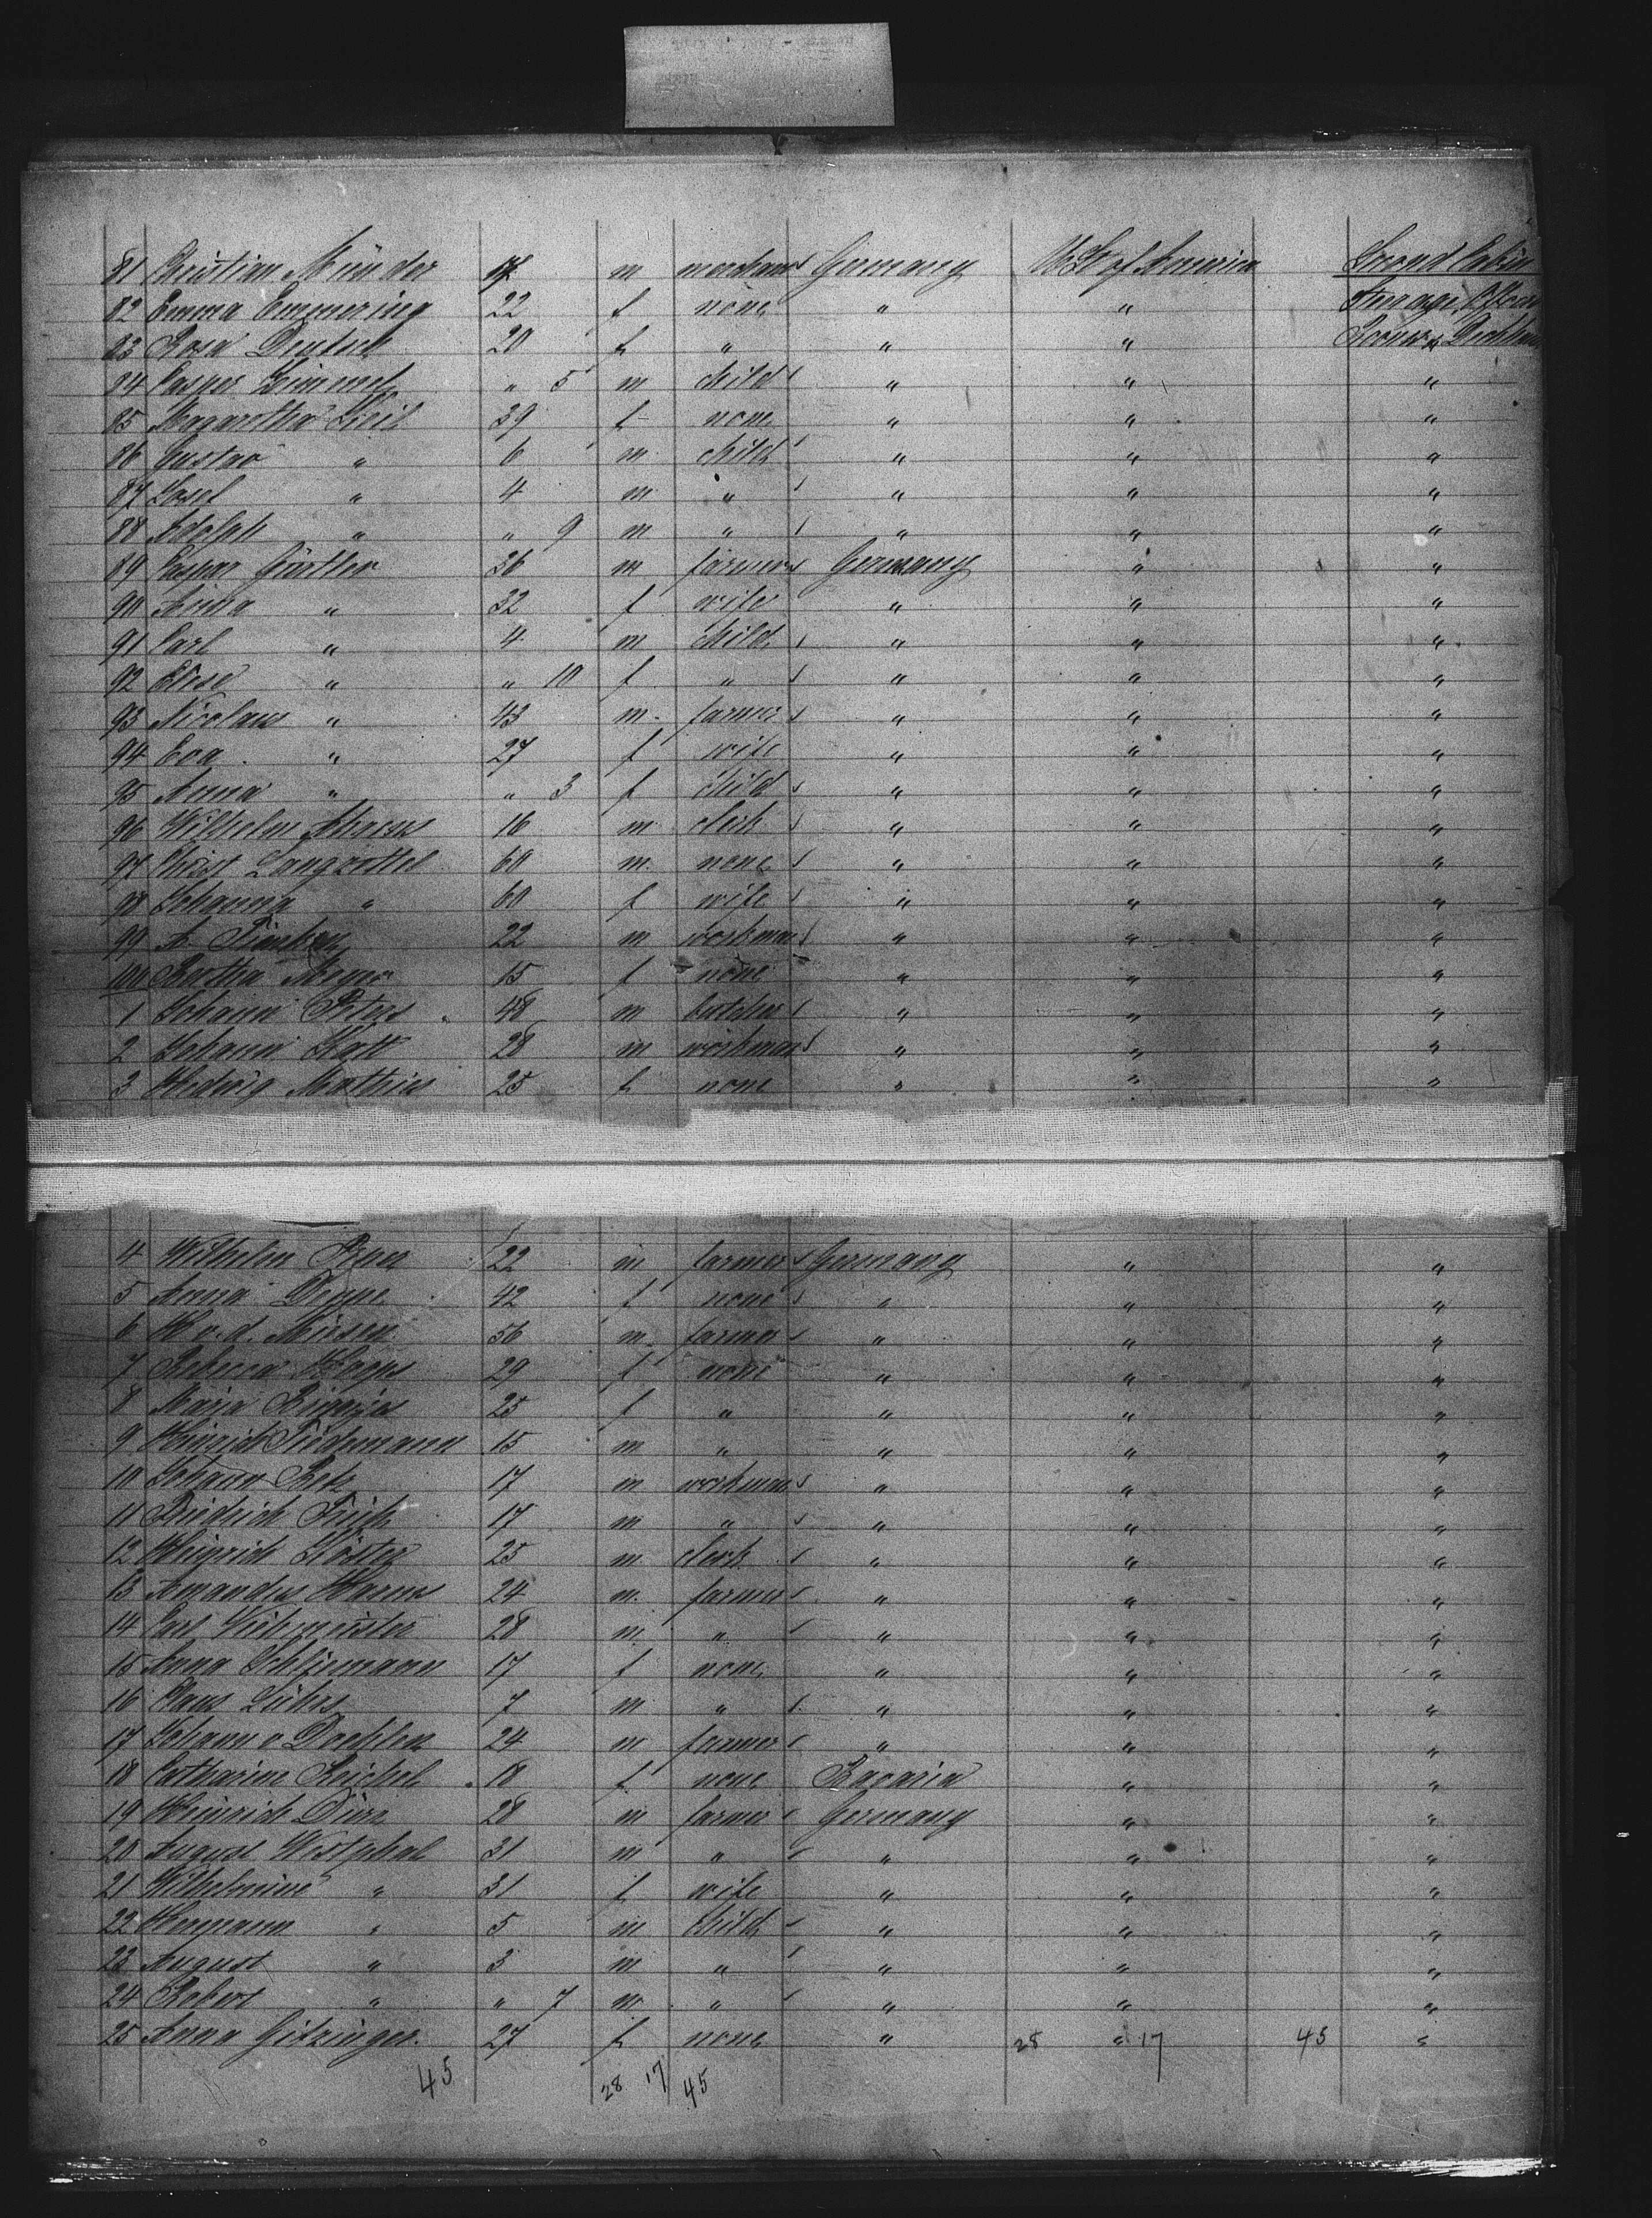 81 Christian Münder m merchant Germany U St of America Second Cabin
82 Emma Emmering 22 f none " " Steerage
83 Rosa Deutsch 20 f " " "
84 Casper Himmel " 5 m child " " "
85 Magaretha Keil 39 f none " " "
86 Gustav " 6 m child " " "
87 Josef " 4 m " " " "
88 Adolph " " 9 m " " " "
89 Caspar Gärtler 36 m farmer Germany " "
90 Anna " 32 f wife " " "
91 Carl " 4 m child " " "
92 Elise " " 10 f " " " "
93 Nicolaus " 43 m farmer " " "
94 Eva " 27 f wife " " "
95 Anna " " 3 f child " " "
96 Wilhelm 16 m clerk " " "
97 Christ Langrottel 60 m none " " "
98 Johanna " 60 f wife " " "
99 A. 22 m workman " " "
100 Bertha Meyer 15 f none " " "
1 Johann Peters 48 m butcher " " "
2 Johann 28 m workman " " "
3 Hedwig Mathies 25 f none " " "
4 Wilhelm 22 m farmer Germany " "
5 Anna 42 f none " " "
6 H v. d. 56 m farmer " " "
7 Rebecca Haops 29 f none " " "
8 Maria 25 f " " " "
9 Heinrich Tiedemann 15 m " " " "
10 Johann Betz 17 m workman " " "
11 Friedrich 17 m " " " "
12 Heinrich Köster 25 m clerk " " "
13 Amandus Harms 24 m farmer " " "
14 Carl Viehmeister 28 m " " " "
15 Anna Schliemann 17 f none " " "
16 Claus Lührs 7 m " " " "
17 Johann v Doehlen 24 m farmer " " "
18 Catharine Reichel 18 f none Bavaria " "
19 Heinrich 28 m farmer Germany " "
20 August Westphal 31 m " " " "
21 Wilhelmine " 31 f wife " " "
22 Hermann " 5 m child " " "
23 August " 3 m " " " "
24 Robert " " 7 m " " " "
25 Anna Gitzinger 27 f none " 28 " 17 45 "
45 28 17 45